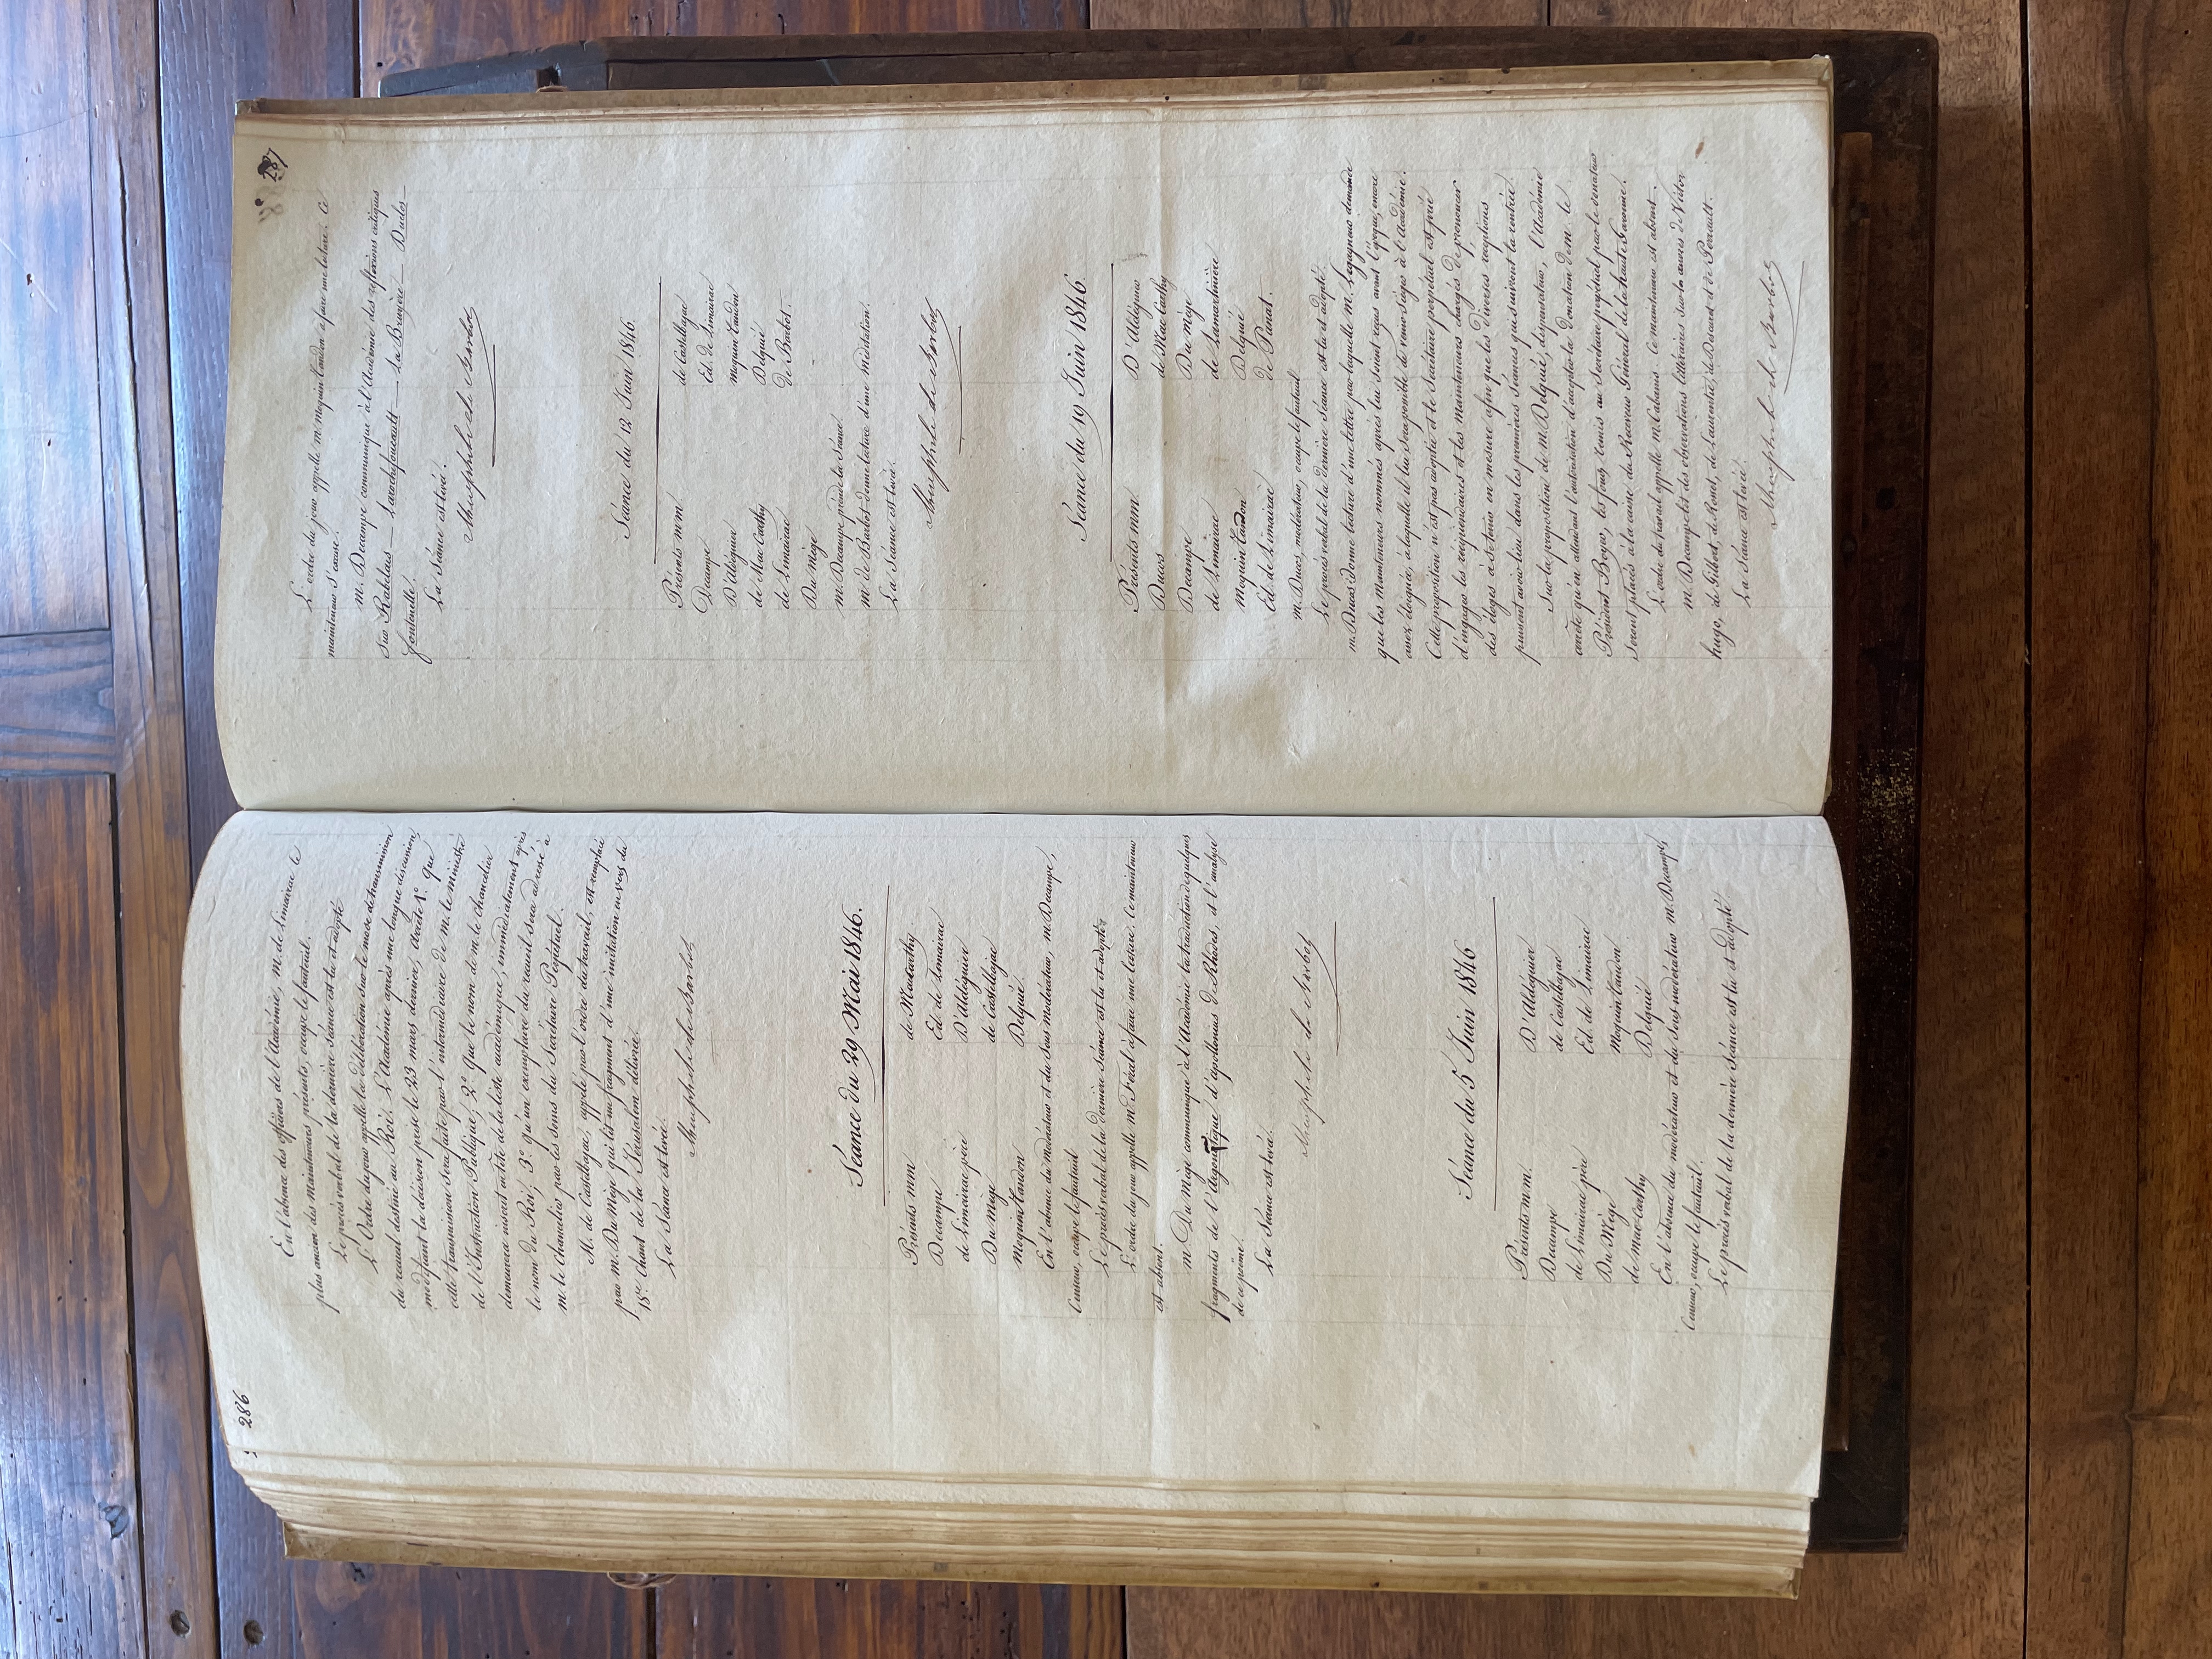 286
En l'absence des officiers de l'Académie, m. de Limairac le
plus ancien des mainteneurs présents, occupe le fauteuil.
Le procès verbal de la dernière séance est lu et adopté
L'Ordre du jour appelle la délibération sur le mode de transmission
du recueil destiné au Roi. L'Académie après une longue discussion,
modifiant la décision prise le 23 mars dernier, arrête 1.° que
cette transmission sera faite par l'intermédiaire de m. le ministre
de l'Instruction Publique, 2.° que le nom de m. le chancelier
demeurera inscrit en tête de la liste académique, immédiatement après
le nom du Roi, 3.° qu'un exemplaire du recueil sera adressé à
m. le chancelier par les soins du Secrétaire Perpétuel.
M. de Castelbajac, appelé par l'ordre du travail, est remplacé
par m. Du Mège qui lit un fragment d'une imitation en vers du
15.e Chant de la Jérusalem délivrée.
La Séance est levée.
Séance du 29 Mai 1846.
Présents mm
Decampe
de Limairac père
Du Mège
Moquin Tandon
de Macarthy
Ed. de Limairac
D'Aldéguier
de Castelbajac
Delquié.
En l'absence du modérateur et du sous modérateur, m. Decampe,
Censeur, occupe le fauteuil
Le procès verbal de la dernière séance est lu et adopté
L'ordre du jour appelle m. Féral à faire une lecture. Ce mainteneur
est absent.
m. Du Mège communique à l'Académie la traduction de quelques
fragments de l'Argonautique d'Apollonius de Rhodes, et l'analyse
de ce poëme.
La Séance est levée.
Séance du 5 Juin 1846
Présents m.m.
Decampe
de Limairac père
Du Mège
de Mac-Carthy
D'Aldéguier
de Castelbajac
Ed. de Limairac
Moquin Tandon
Delquié
En l'absence du modérateur et du sous modérateur m. Decampe,
Censeur, occupe le fauteuil.
Le procès verbal de la dernière séance est lu et adopté
287
L'ordre du jour appelle m. Moquin Tandon à faire une lecture. Ce
mainteneur s'excuse.
m. Decampe communique à l'Académie des réflexions critiques
sur Rabelais — Larochefoucault — La Bruyère — Duclos
fontenelle.
La Séance est levée.
Séance du 12 Juin 1846
Présents m m
Decampe
D'Aldéguier
de Mac Carthy
de Limairac
Du Mège
de Castelbajac
Ed. de Limairac
Moquin Tandon
Delquié
de Barbot.
m. Decampe préside la Séance.
m. de Barbot donne lecture d'une méditation.
La Séance est levée.
Séance du 19 Juin 1846.
Présents mm
Ducos
Decampe
de Limairac
Moquin Tandon
Ed. de Limairac
D'Aldéguier
de Mac Carthy
Du Mège
de Lamartinière
Delquié
de Panat.
m. Ducos, modérateur, occupe le fauteuil.
Le procès verbal de la dernière Séance est lu et adopté.
m. Ducos donne lecture d'une lettre par laquelle M. Lagagneur demande
que les mainteneurs nommés après lui soient reçus avant l'époque, encore
assez éloignée, à laquelle il lui sera possible de venir siéger à l'Académie.
Cette proposition n'est pas adoptée et le Secrétaire perpétuel est prié
d'engager les récipiendaires et les mainteneurs chargés de prononcer
des éloges à se tenir en mesure afin que les diverses réceptions
puissent avoir lieu dans les premières Séances qui suivront la rentrée.
Sur la proposition de m. Delquié, dispensateur, l'Académie
arrête qu'en attendant l'autorisation d'accepter la donation de m. le
Président Boyer, les fonds remis au Secrétaire perpétuel par le donateur
seront placés à la caisse du Receveur Général de la haute Garonne.
L'ordre du travail appelle m. Cabanis. Ce mainteneur est absent.
m. Decampe lit des observations littéraires sur les œuvres de Victor
hugo, de Gilbert, de Ronet, de Laurentie, de Ducard et de Perrault.
La Séance est levée.